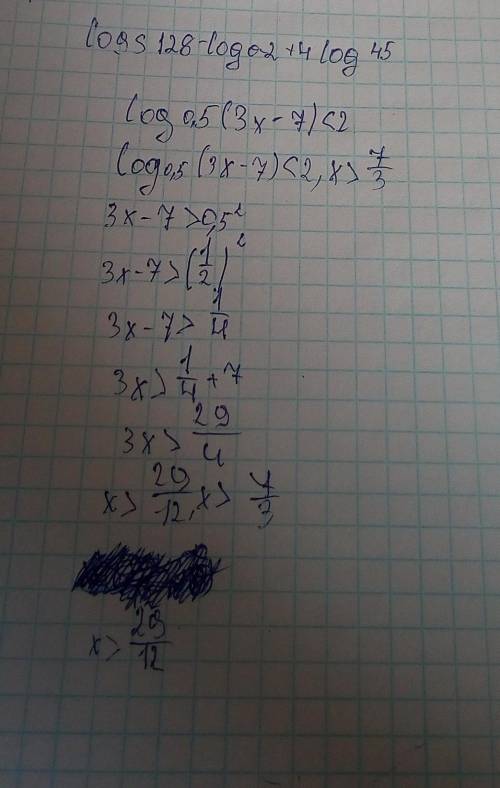 log5 128-log0-2+4 log 45
log0,5(3x-7)<2
log0,5(3x-7)<2, x>7/3
3x-7>0,5²
3x-7>(1/2)²
3x-7>1/4
3x>1/4+7
3x>29/4
x>29/12, x>7/3
x>29/12